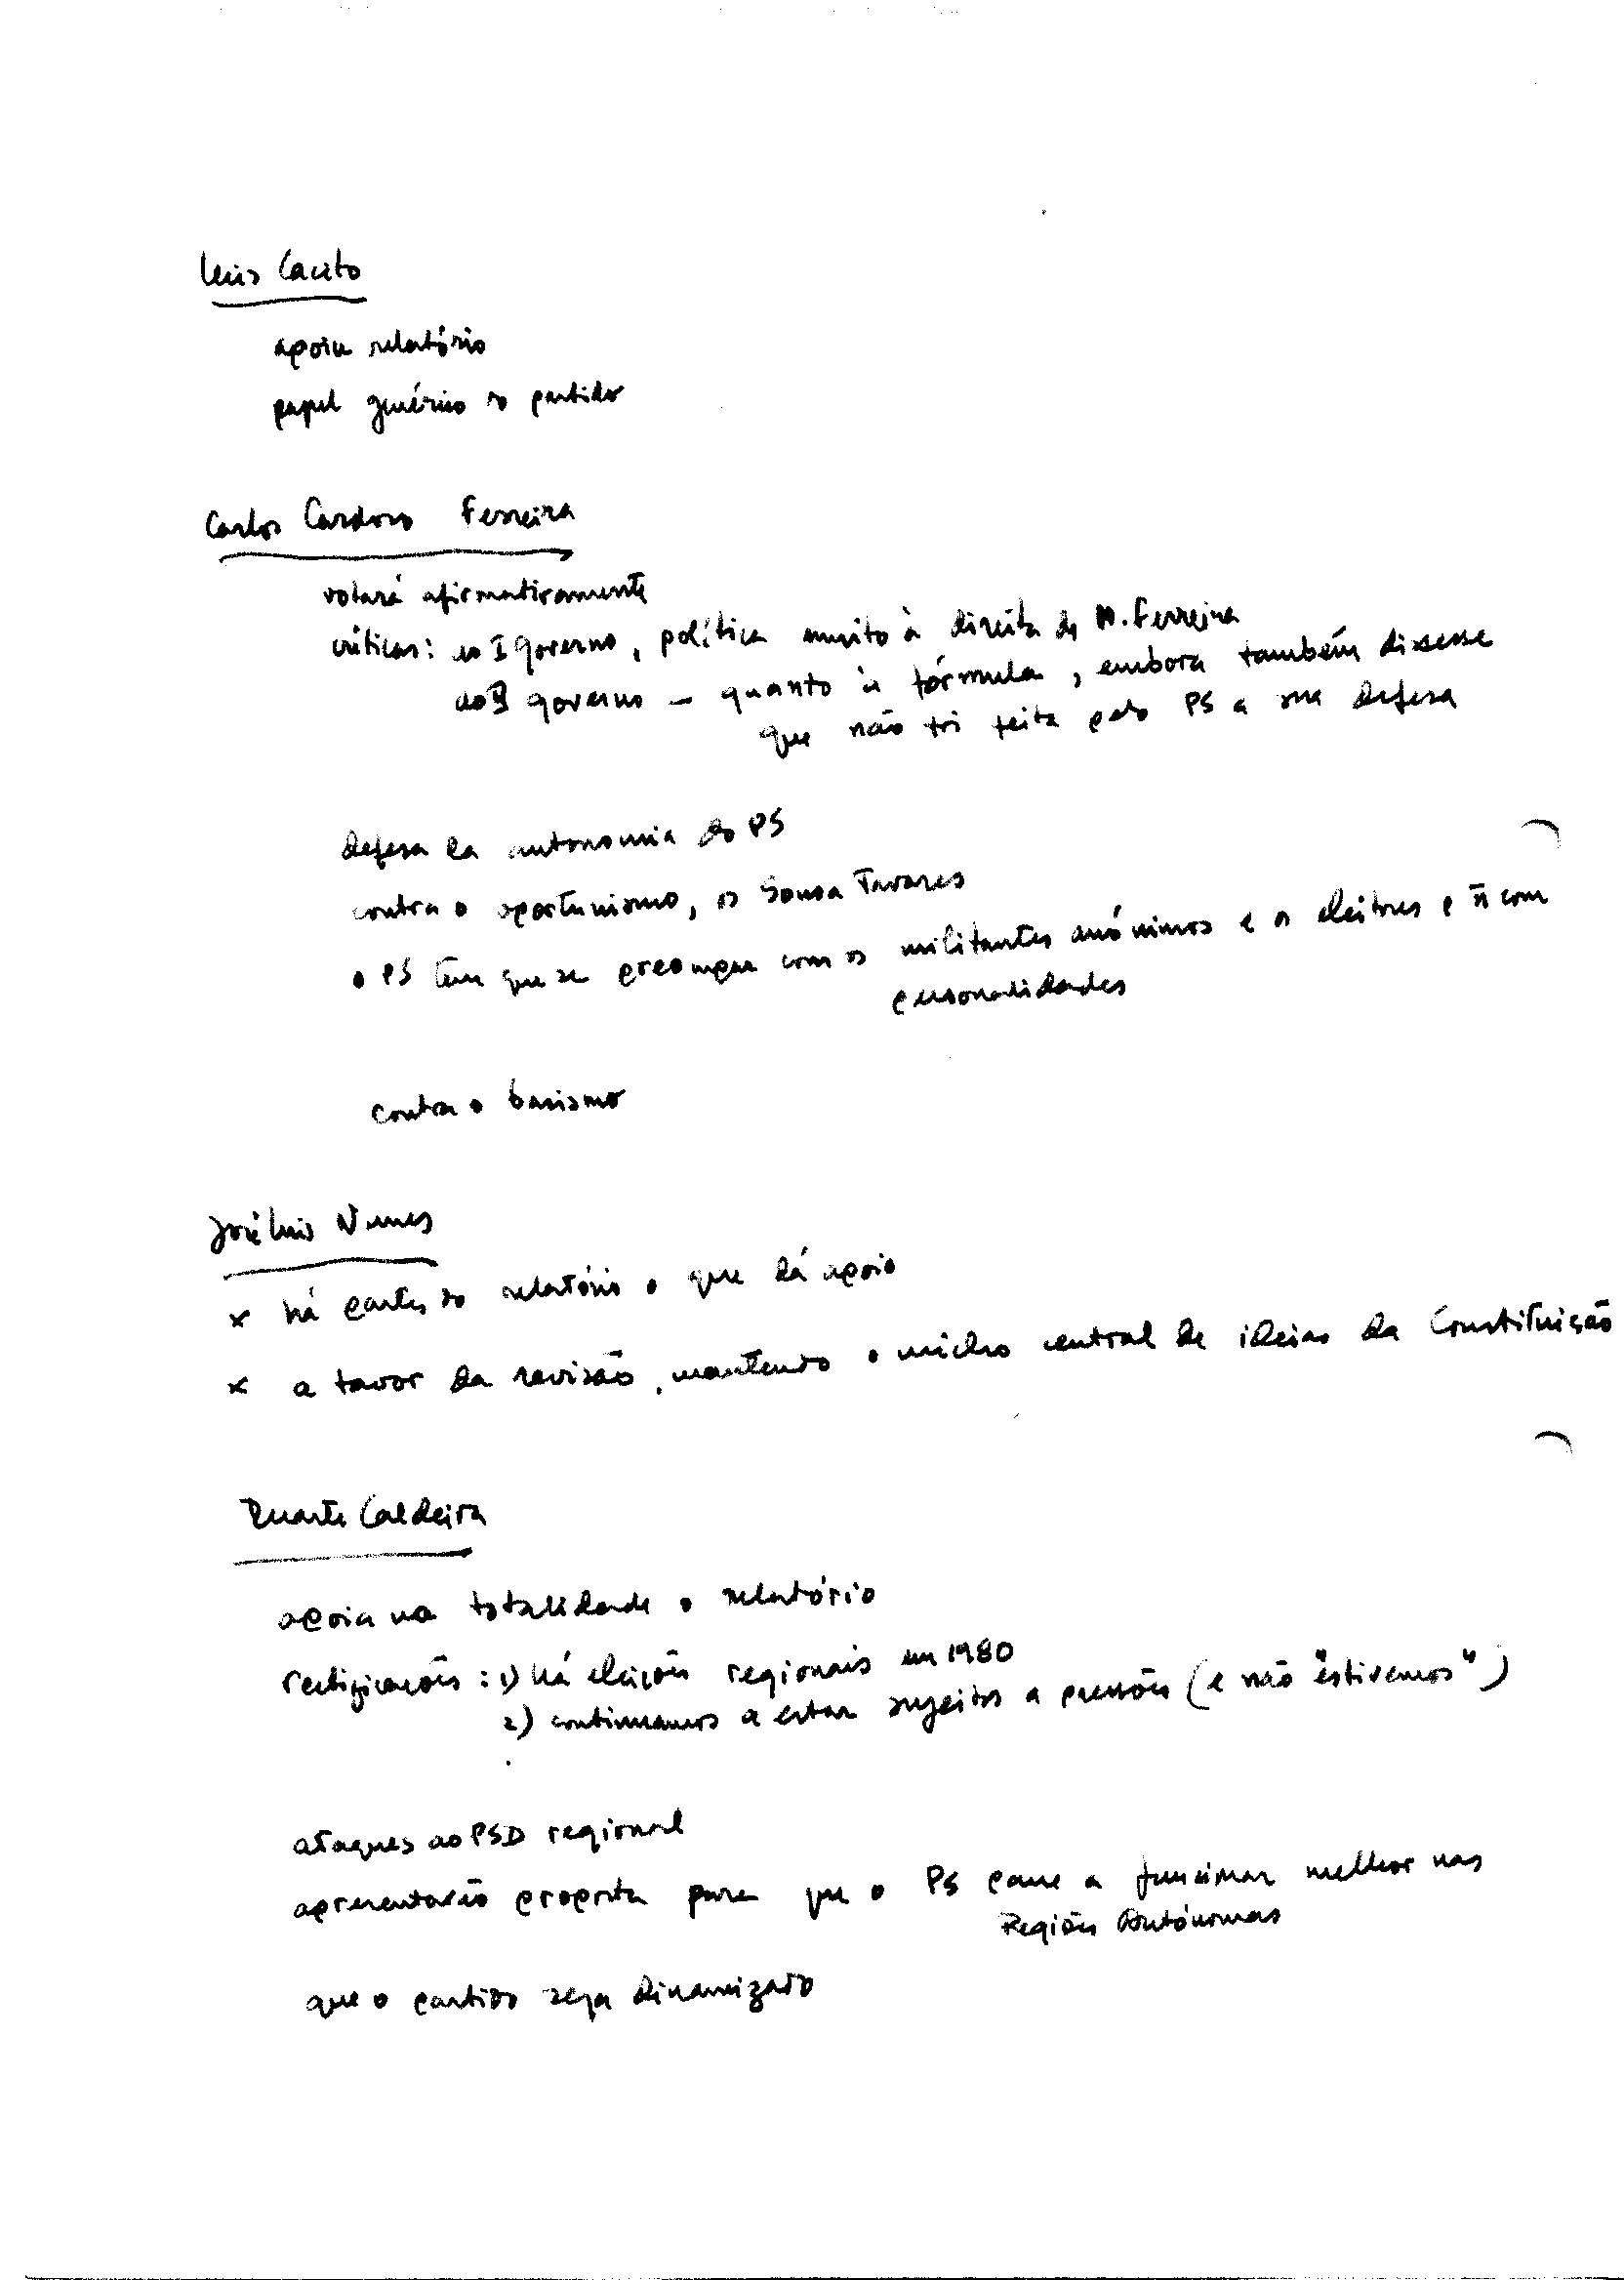 Luís Cacito
apoia relatório
papel genérico do partido
Carlos Cardoso Ferreira
votará afirmativamente
críticas: ao I governo, política muito à direita de M. Ferreira
ao II governo – quanto à fórmula, embora também dissesse
que não foi feita pelo PS a sua defesa
defesa da autonomia do PS
contra o oportunismo, os Sousa Tavares
o PS tem que se preocupar com os militantes anónimos e os eleitores e ñ com
personalidades
contra o basismo
José Luís Nunes
x há partes do relatório a que dá apoio
x a favor da revisão, mantendo o núcleo central de ideias da Constituição
Duarte Caldeira
apoia na totalidade o relatório
rectificações: 1) há eleições regionais em 1980
2) continuamos a estar sujeitos a pressões (e não "estivemos")
ataques ao PSD regional
apresentarão proposta para que o PS passe a funcionar melhor nas
Regiões Autónomas
que o partido seja dinamizado